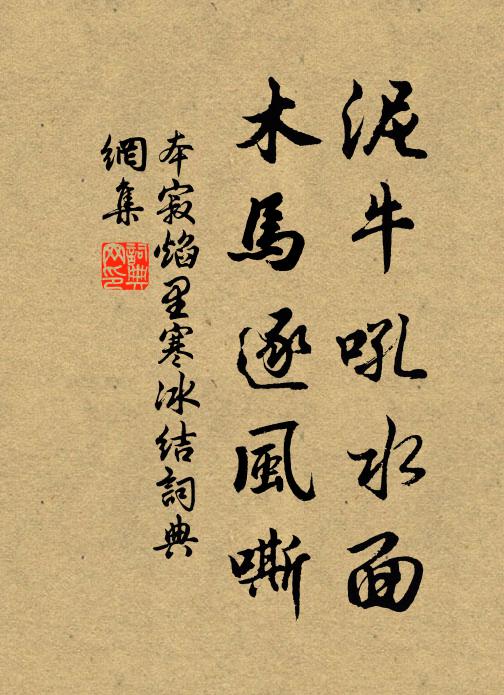 泥牛吼水面
木馬逐風嘶
本寂焰里寒冰結詞典
網集
詞典
网印